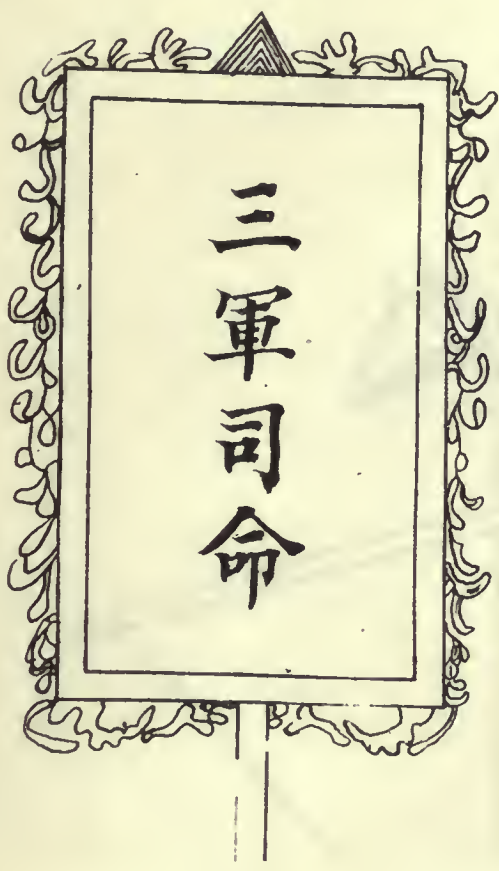 三軍司命